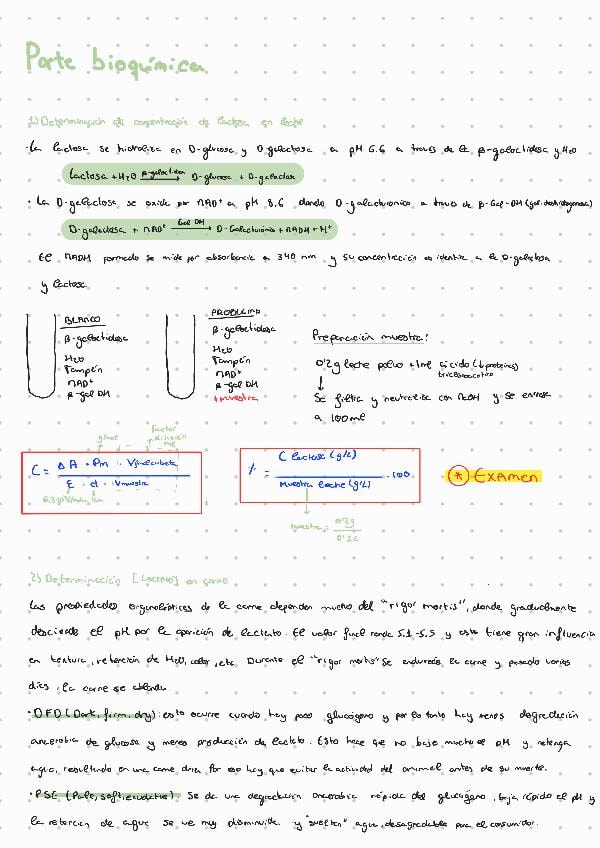 Parte bioquímica
1) Determinación de concentración de lactosa en leche
· La lactosa se hidroliza en D-glucosa y D-galactosa a pH 6.6 a través de la β-galactidasa y H2O
Lactosa + H2O β-galactidasa → D-glucosa + D-galactosa
· La D-galactosa se oxida por NAD+ a pH 8.6 dando D-Galacturónico a través de β-Gal-DH (gal. deshidrogenasa)
D-galactosa + NAD+ Gal DH → D-Galacturónico + NADH + H+
El NADH formado se mide por absorbancia a 340 nm y su concentración es idéntica a la D-galactosa
y lactosa
BLANCO
β-galactidasa
H2O
Tampón
NAD+
β-gal DH
PROBLEMA
β-galactidasa
H2O
Tampón
NAD+
β-gal DH
+ muestra
Preparación muestra:
0'2g leche polvo + 1ml ácido (↓ proteínas)
tricloroacético
↓
Se filtra y neutraliza con NaOH y se enrasa
a 100ml
g/mol
Factor
dilución
mL
C = ΔA · Pm · Vfinal cubeta
ε · d · Vmuestra
1cm
% = C lactosa (g/L)
muestra leche (g/L) · 100
muestra = 0'2g
0'1L
* EXAMEN
2) Determinación [LACTATO] en carne
Las propiedades organolépticas de la carne dependen mucho del "rigor mortis", donde gradualmente
desciende el pH por la aparición de lactato. El valor final ronda 5.1-5.5 y esto tiene gran influencia
en textura, retención de H2O, color, etc. Durante el "rigor mortis" se endurece la carne y pasado varios
días, la carne se ablanda
· DFD (Dark, firm, dry): esto ocurre cuando hay poco glucógeno y por lo tanto hay menos degradación
anaerobia de glucosa y menos producción de lactato. Esto hace que no baje mucho el pH y retenga
agua, resultando en una carne dura. Por eso hay que evitar la actividad del animal antes de su muerte.
· PSE (Pale, soft, exudative): Se da una degradación anaerobia rápida del glucógeno, baja rápido el pH y
la retención de agua se ve muy disminuida y "sueltan" agua, desagradable para el consumidor.